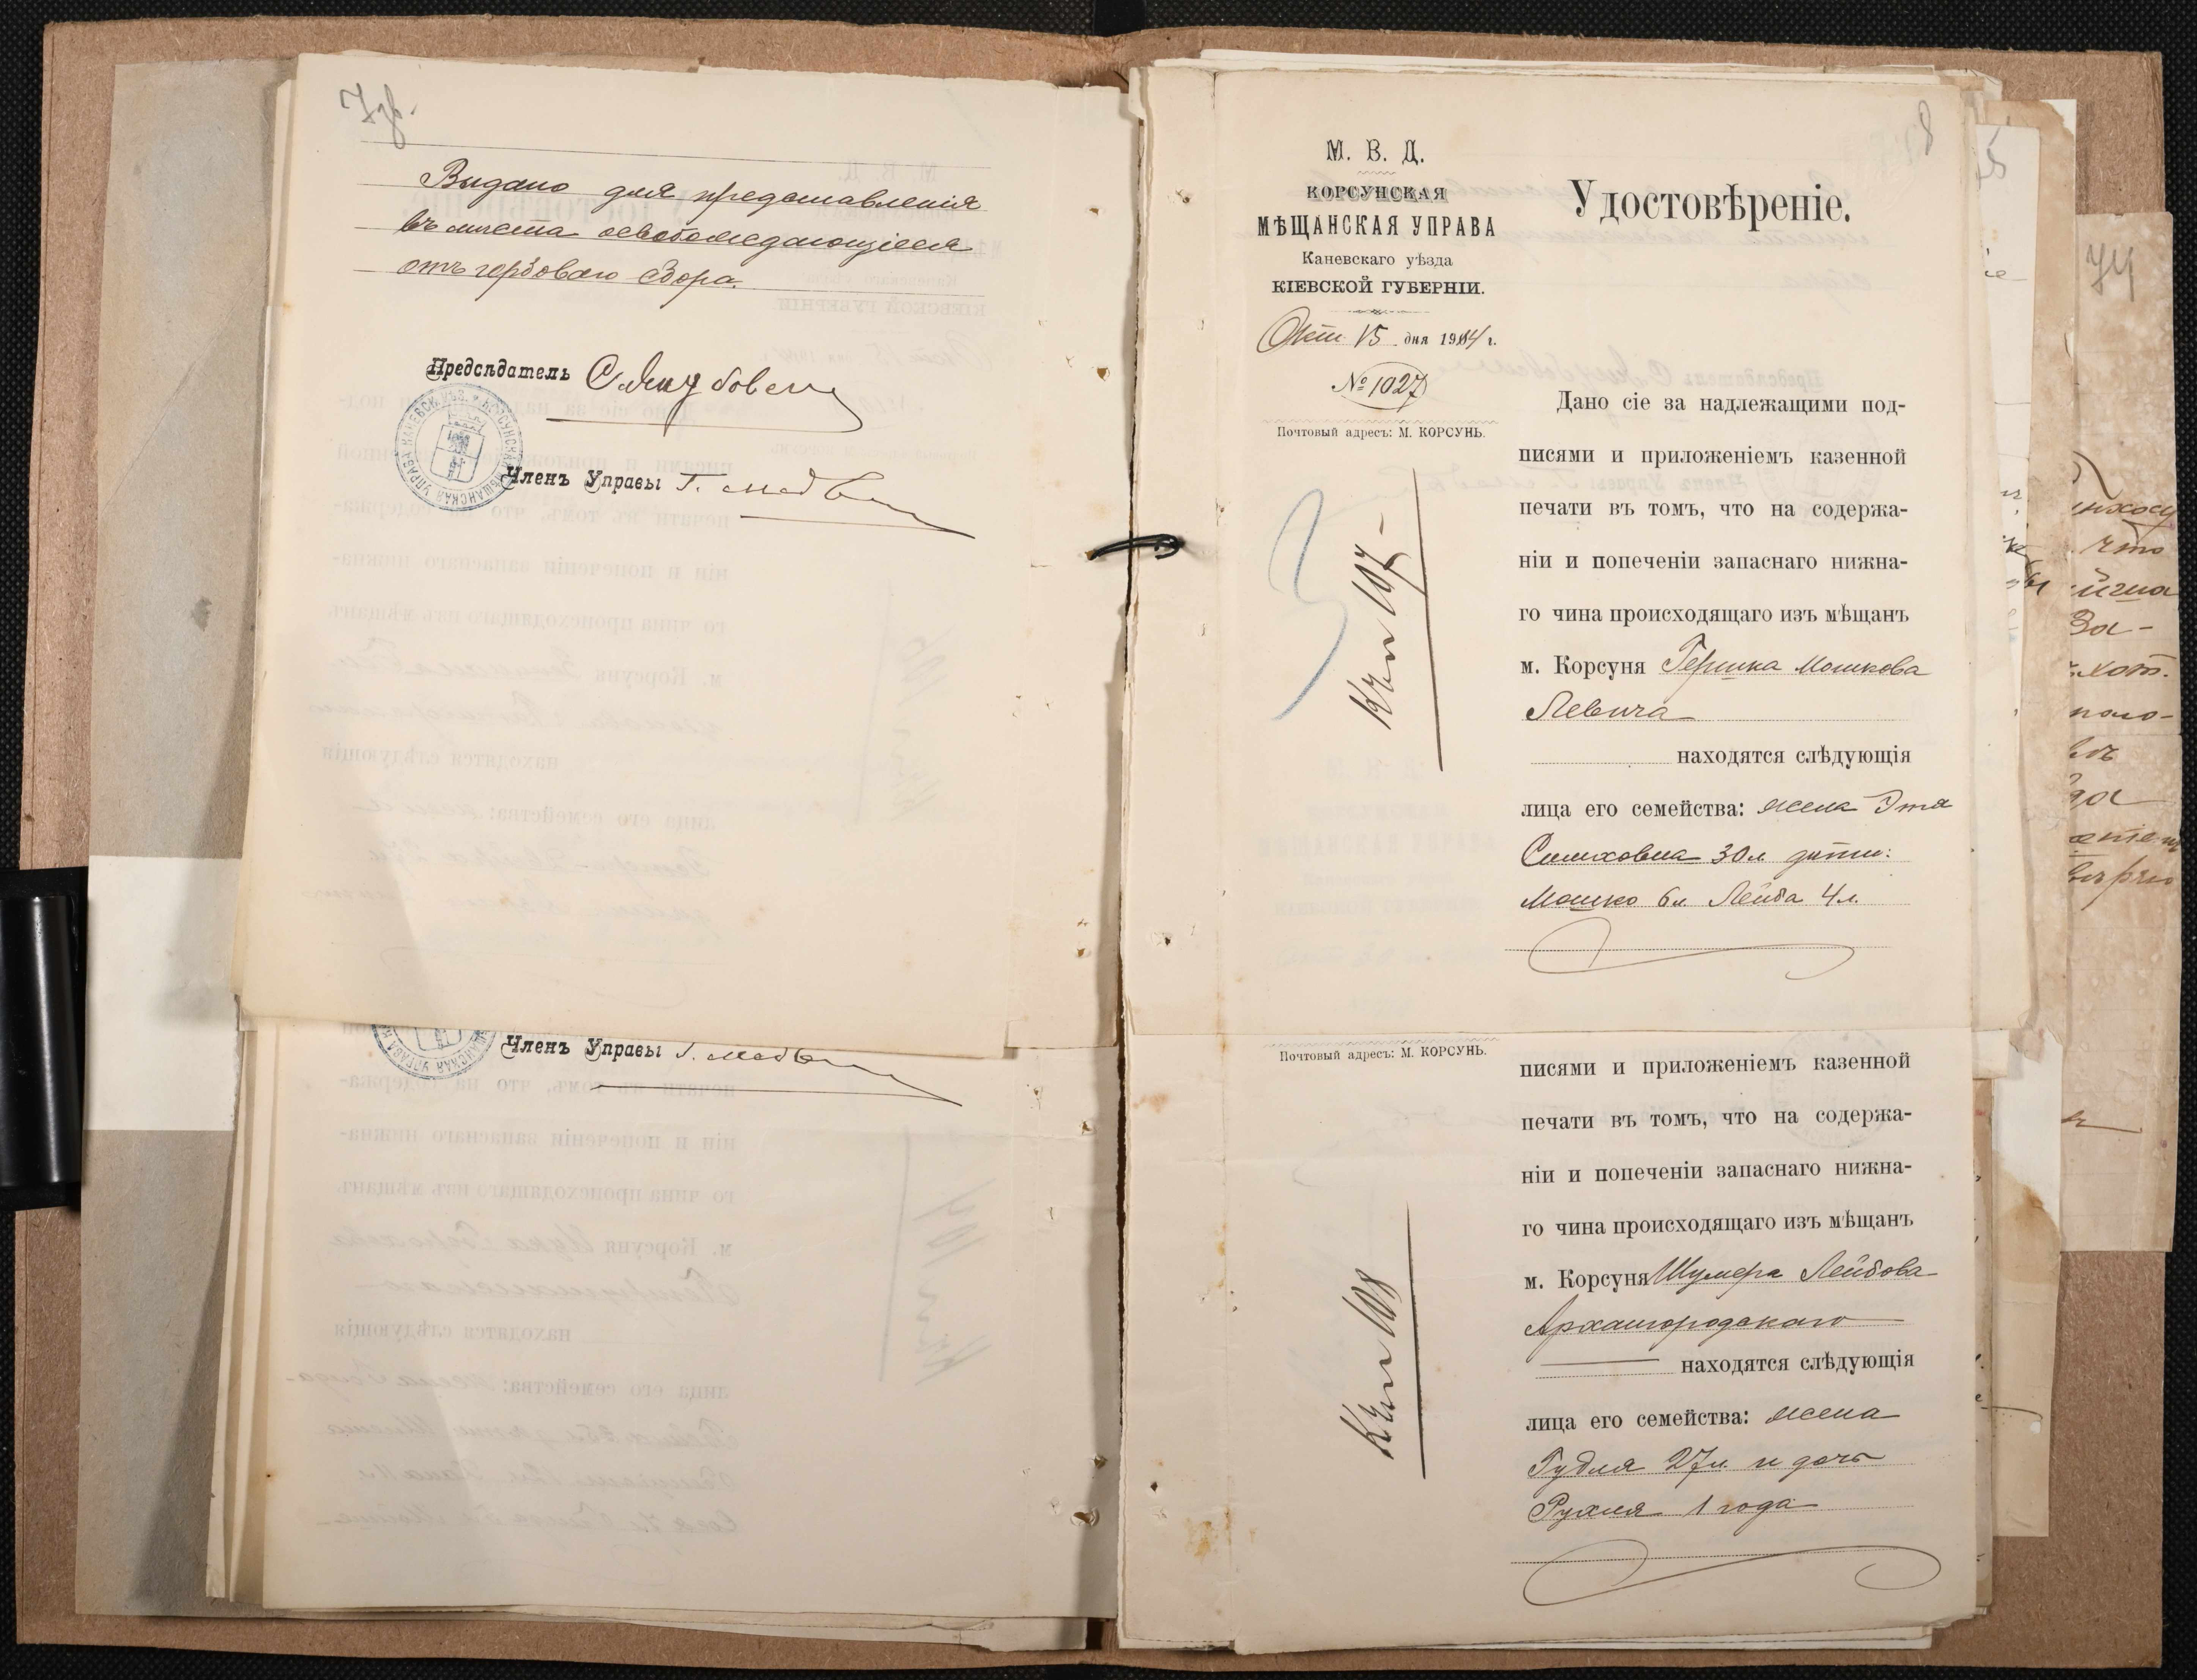 7 об.
Выдано для представленія
въ места освобождающіеся
отъ гербоваго сбора.
Предсѣдатель
Членъ Управы
Членъ Управы
8
М. В. Д.
КОРСУНСКАЯ
МѢЩАНСКАЯ УПРАВА
Каневскаго уѣзда
КІЕВСКОЙ ГУБЕРНІИ.
Окт. 15 дня 1914 г.
№ 1027
Почтовый адресъ: М. КОРСУНЬ.
3
К № 107
Удостовѣреніе.
Дано сіе за надлежащими под-
писями и приложеніемъ казенной
печати въ томъ, что на содержа-
ніи и попеченіи запаснаго нижня-
го чина происходящаго изъ мѣщанъ
м. Корсуня Гершка Мошкова
Левича
находятся слѣдующія
лица его семейства: жена Этя
Симховна 30 л дѣти:
Мошко 6 л. Лейба 4 л.
Почтовый адресъ: М. КОРСУНЬ.
К № 108
писями и приложеніемъ казенной
печати въ томъ, что на содержа-
ніи и попеченіи запаснаго нижня-
го чина происходящаго изъ мѣщанъ
м. Корсуня Шумера Лейбова
Архангородскаго
находятся слѣдующія
лица его семейства: жена
Гудля 27 л. и дочь
Рухля 1 года
74
что
За-
хот.
поло-
въ